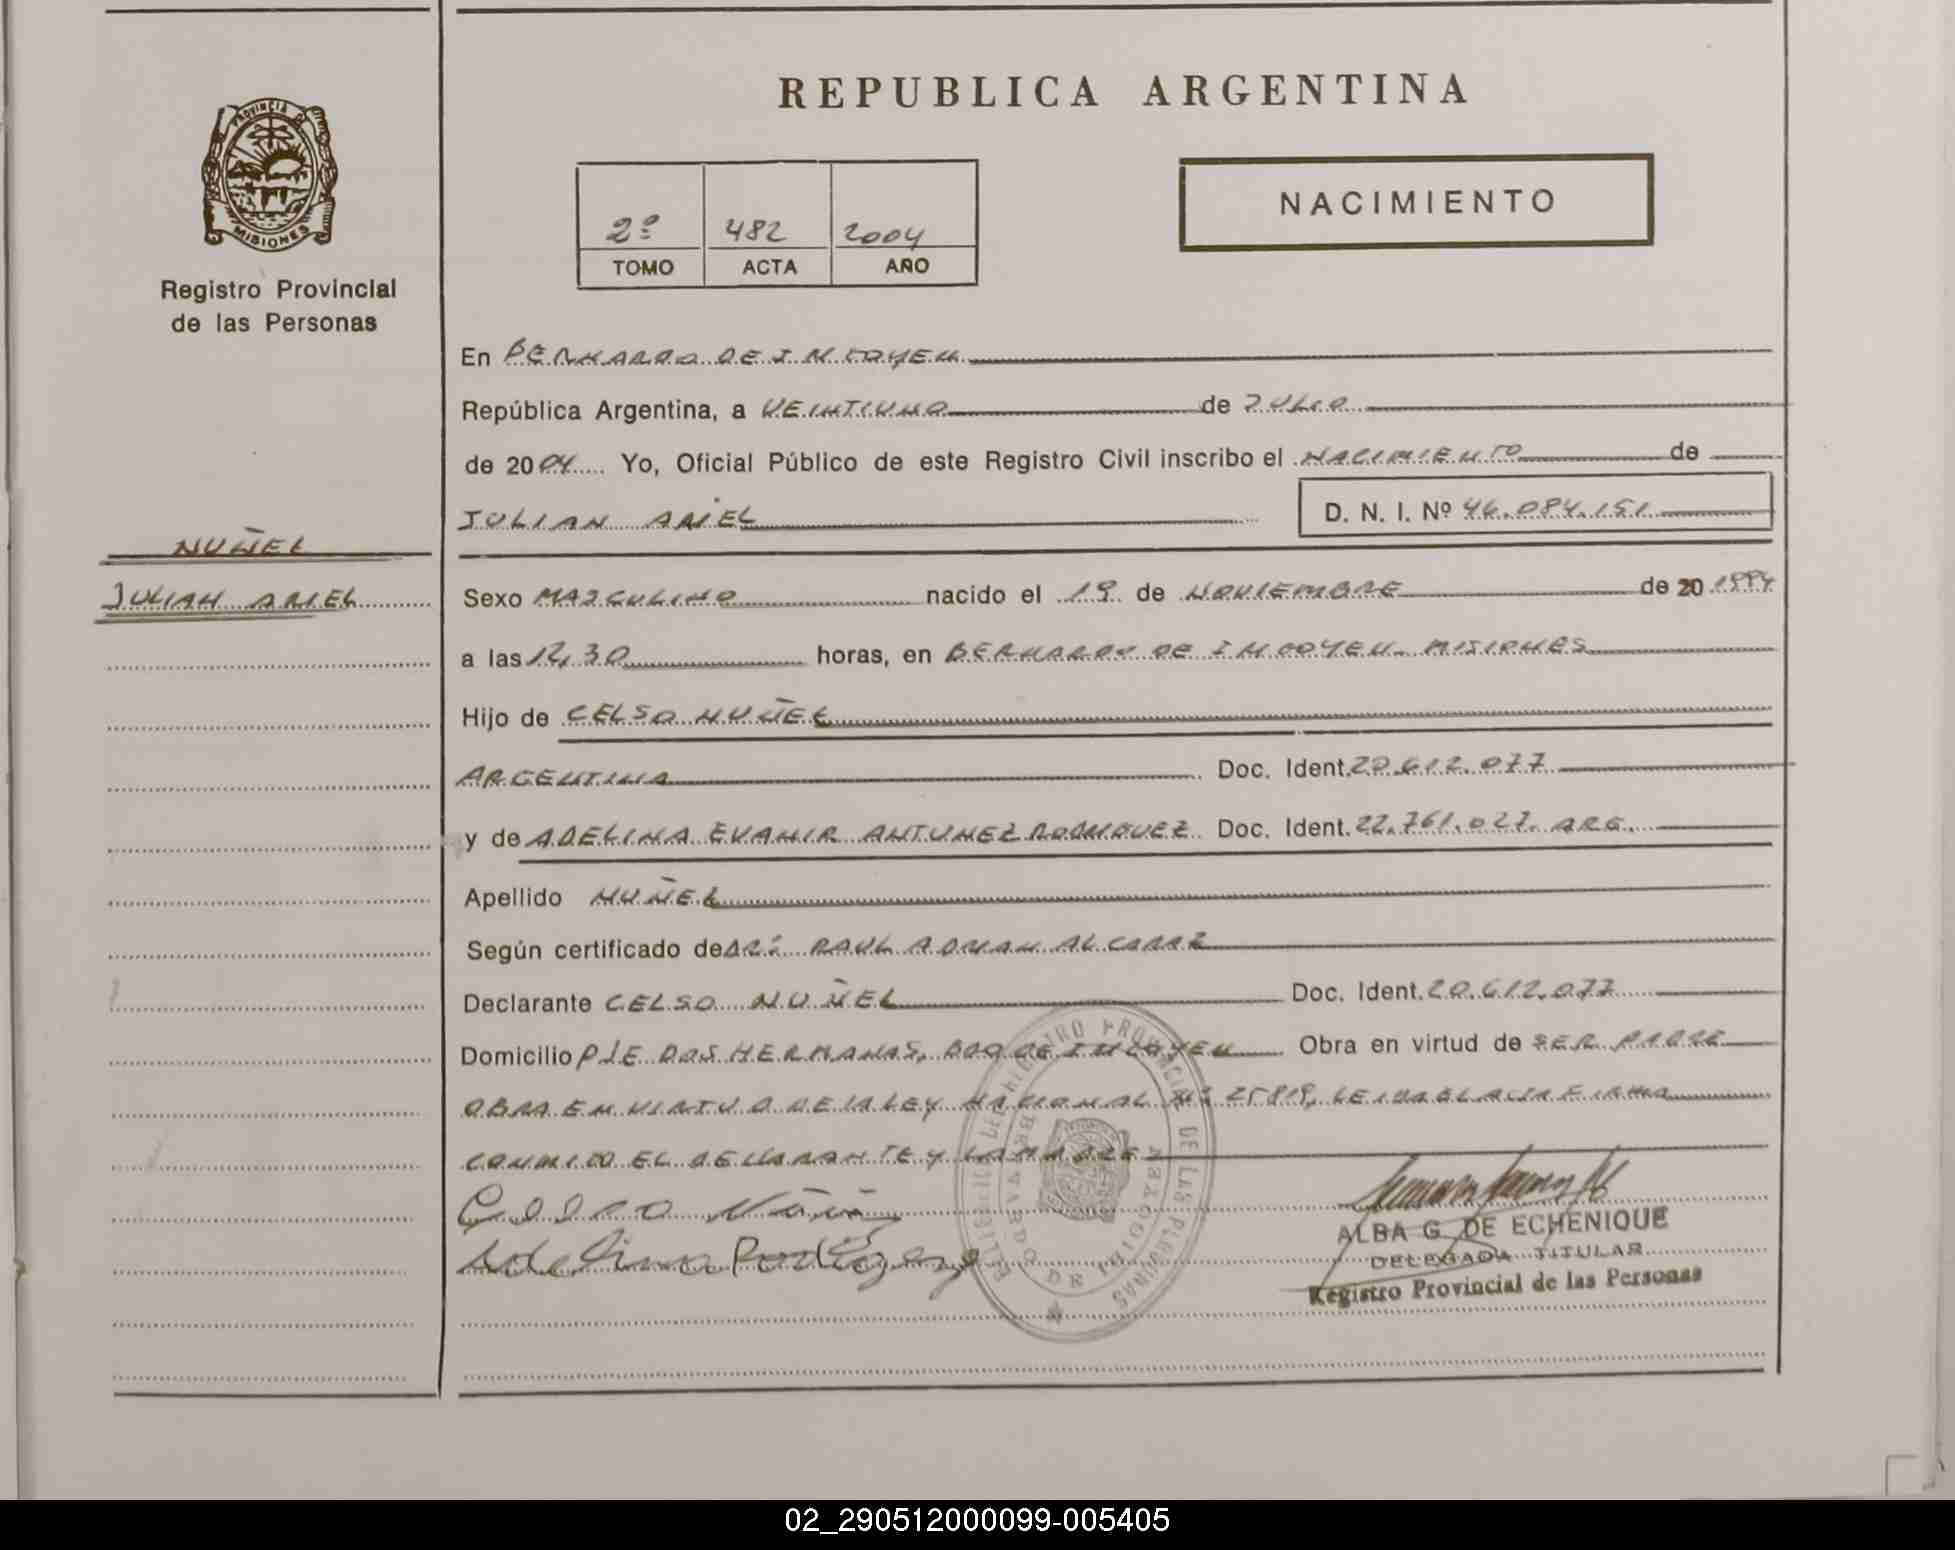 REPUBLICA ARGENTINA
PROVINCIA DE
MISIONES
Registro Provincial
de las Personas
2º 482 2004
TOMO ACTA AÑO
NACIMIENTO
En BERNARDO DE IRIGOYEN
República Argentina, a VEINTIUNO de JULIO
de 2004 Yo, Oficial Público de este Registro Civil inscribo el NACIMIENTO de
JULIAN ARIEL D. N. I. Nº 46.084.151
NUÑEZ
JULIAN ARIEL
Sexo MASCULINO nacido el 19 de NOVIEMBRE de 20 1994
a las 12,30 horas, en BERNARDO DE IRIGOYEN - MISIONES
Hijo de CELSO NUÑEZ
ARGENTINA Doc. Ident. 20.612.077
y de ADELINA EVANIR ANTUNEZ RODRIGUEZ Doc. Ident. 22.761.027. ARG.
Apellido NUÑEZ
Según certificado de DR: RAUL ADRIAN ALCARAZ
Declarante CELSO NUÑEZ Doc. Ident. 20.612.077
Domicilio PJE DOS HERMANAS, BDO DE IRIGOYEN Obra en virtud de SER PADRE
OBRA EN VIRTUD DE LA LEY NACIONAL Nº 25819, LEIDA EL ACTA FIRMA
CONMIGO EL DECLARANTE Y LA MADRE
Celso
Adelina
REGISTRO PROVINCIAL DE LAS PERSONAS
BERNARDO DE IRIGOYEN
ALBA G. DE ECHENIQUE
DELEGADA TITULAR
Registro Provincial de las Personas
02_290512000099-005405